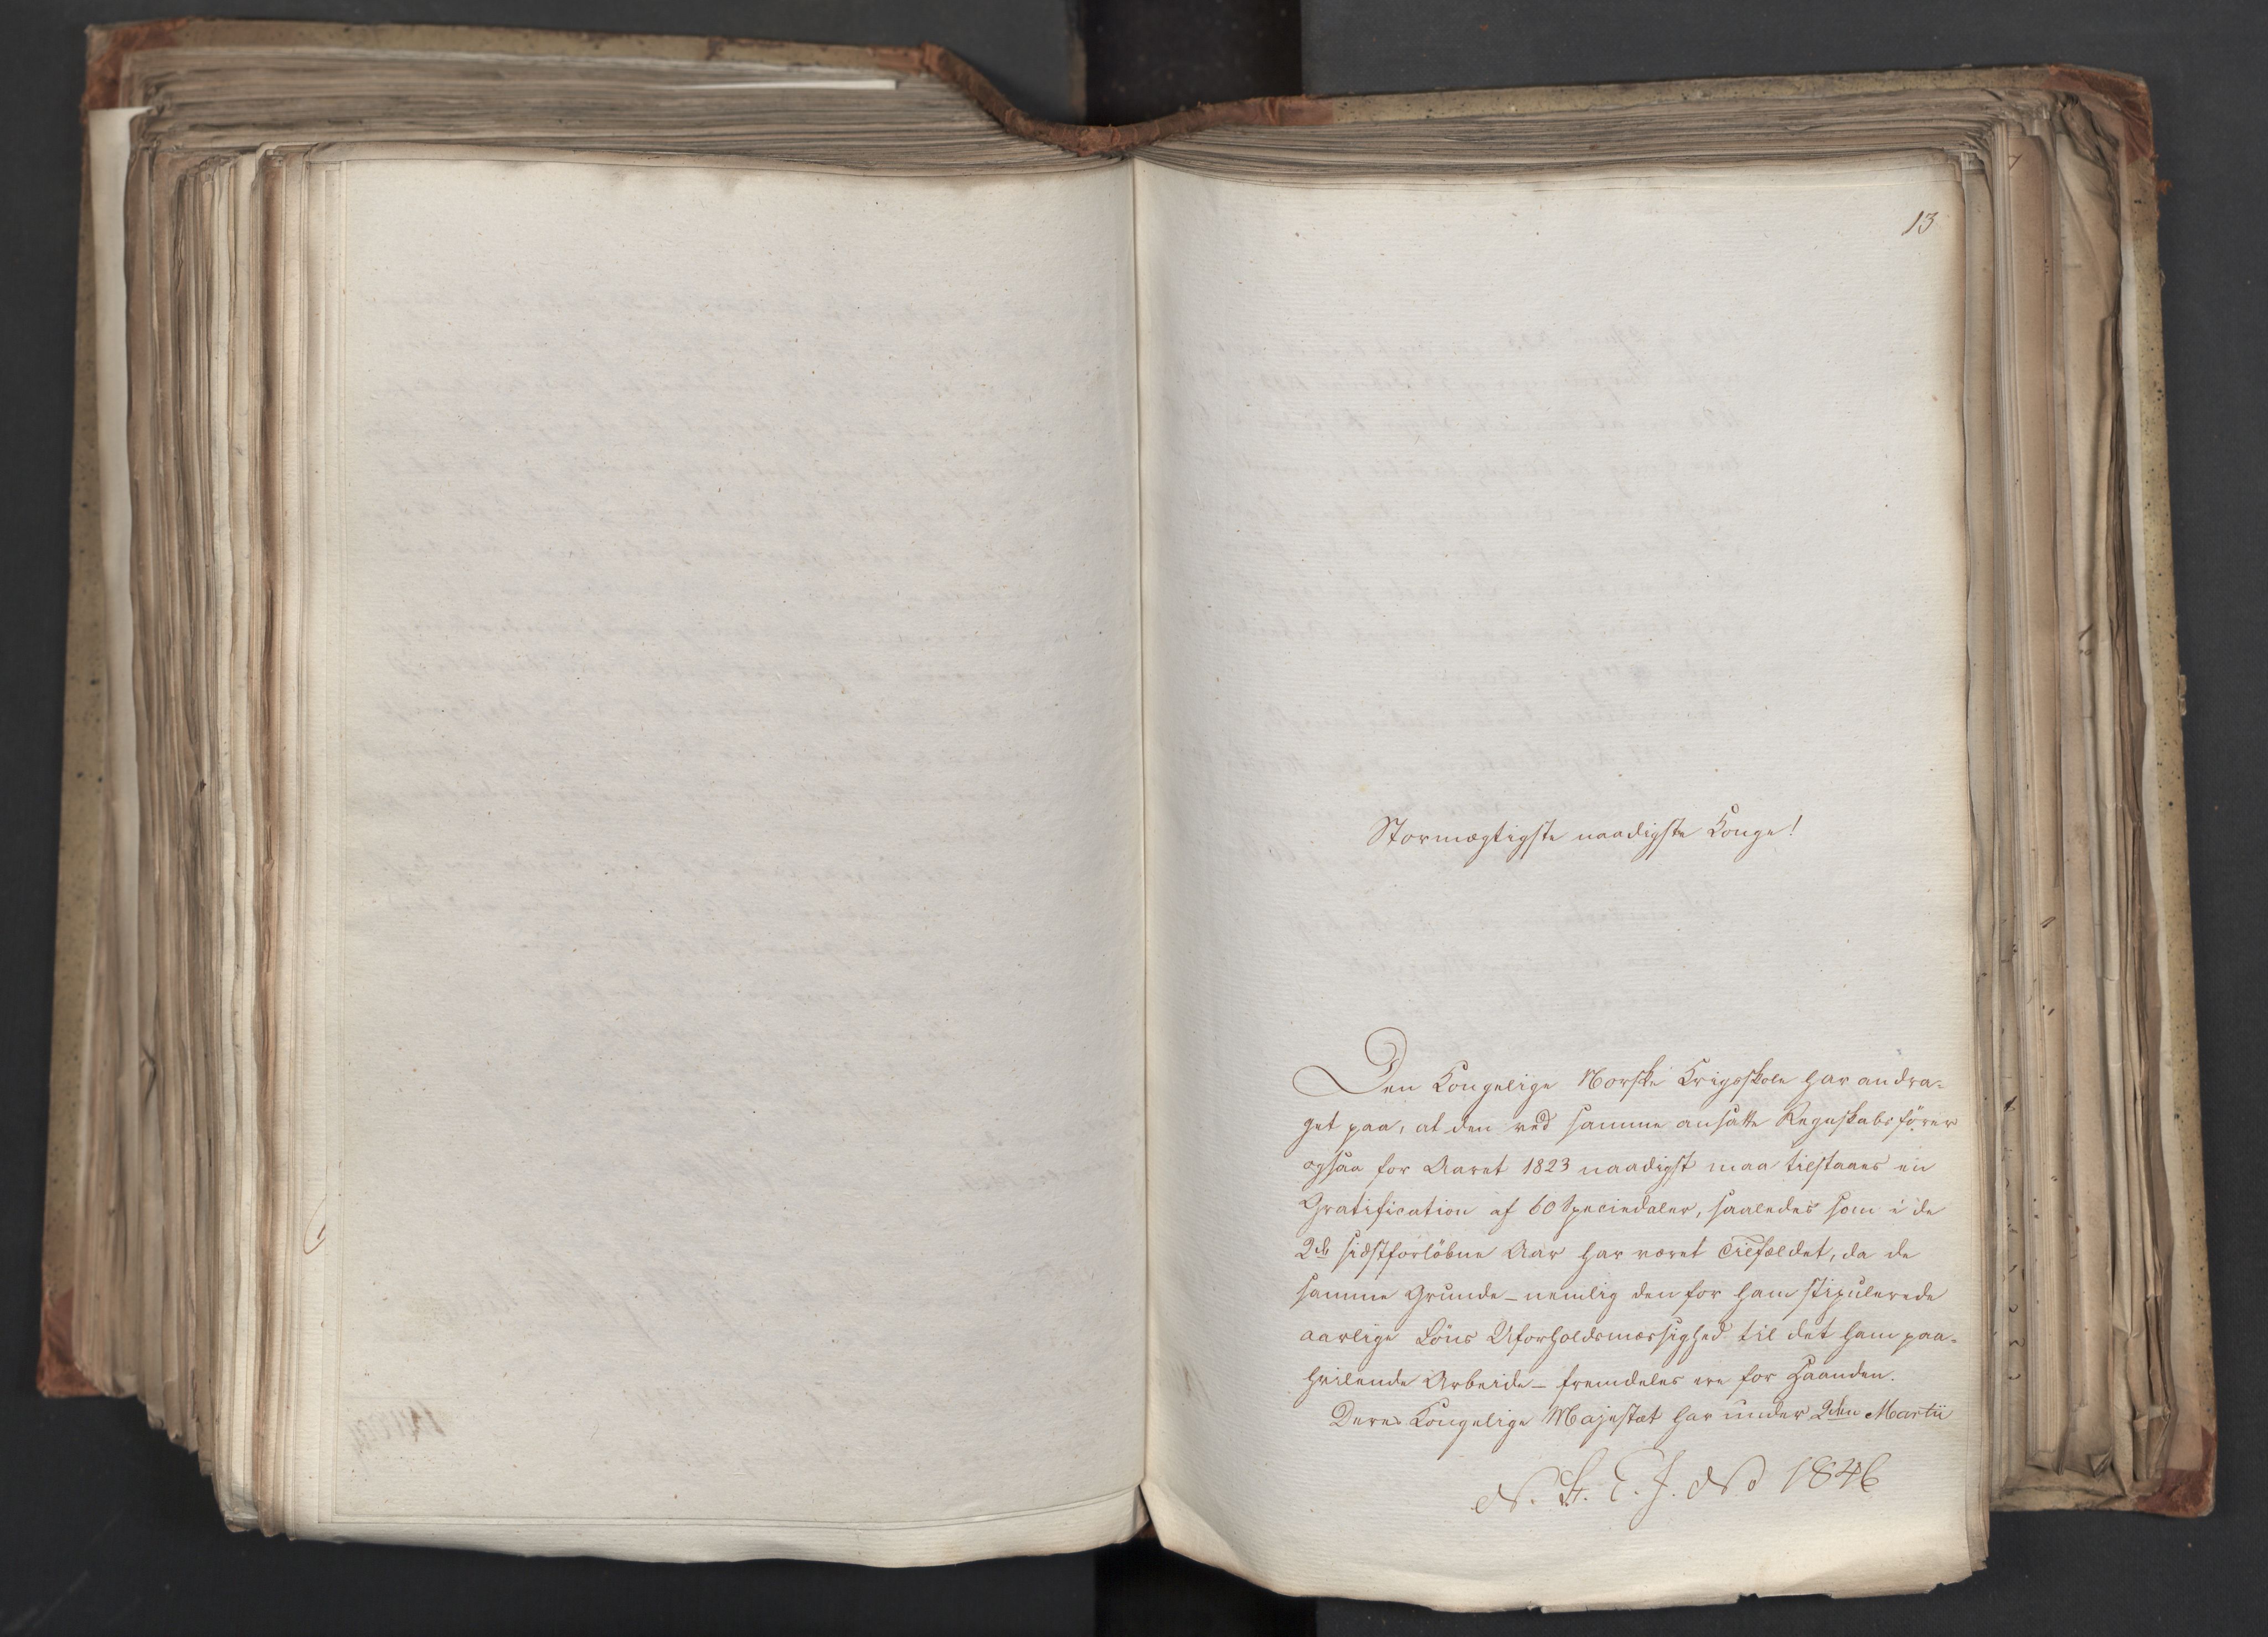 13
Stormægtigste naadigste Konge!
Den Kongelige Norske Krigsskole har andra-
get paa, at den ved samme ansatte Regnskabsfører
ogsaa for Aaret 1823 naadigst maa tilstaaes en
Gratification af 60 Speciedaler, saaledes som i de
2de sidstforløbne Aar har været Tilfældet, da de
samme Grunde _ nemlig den for ham stipulerede
aarlige Løns Uforholdsmæssighed til det ham paa-
hvilende Arbeide _ fremdeles ere for Haanden.
Deres Kongelige Majestæt har under 2den Martii
No 1846